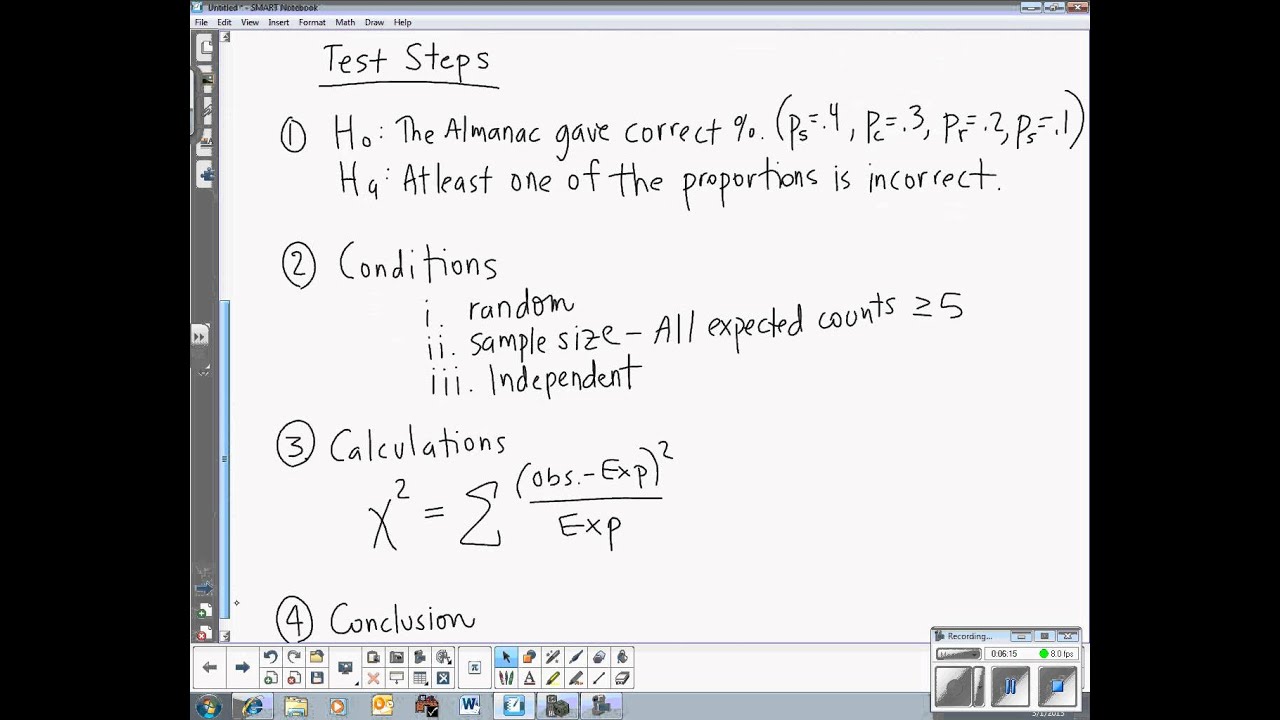 Untitled * - SMART Notebook
File Edit View Insert Format Math Draw Help
Test Steps
① H₀: The Almanac gave correct %. (pₛ=.4, p꜀=.3, pᵣ=.2, pₛ=.1)
Hₐ: Atleast one of the proportions is incorrect.
② Conditions
i. random
ii. sample size – All expected counts ≥ 5
iii. Independent
③ Calculations
χ² = Σ (obs. – Exp)² / Exp
④ Conclusion
Recording...
0:06:15 8.0 fps